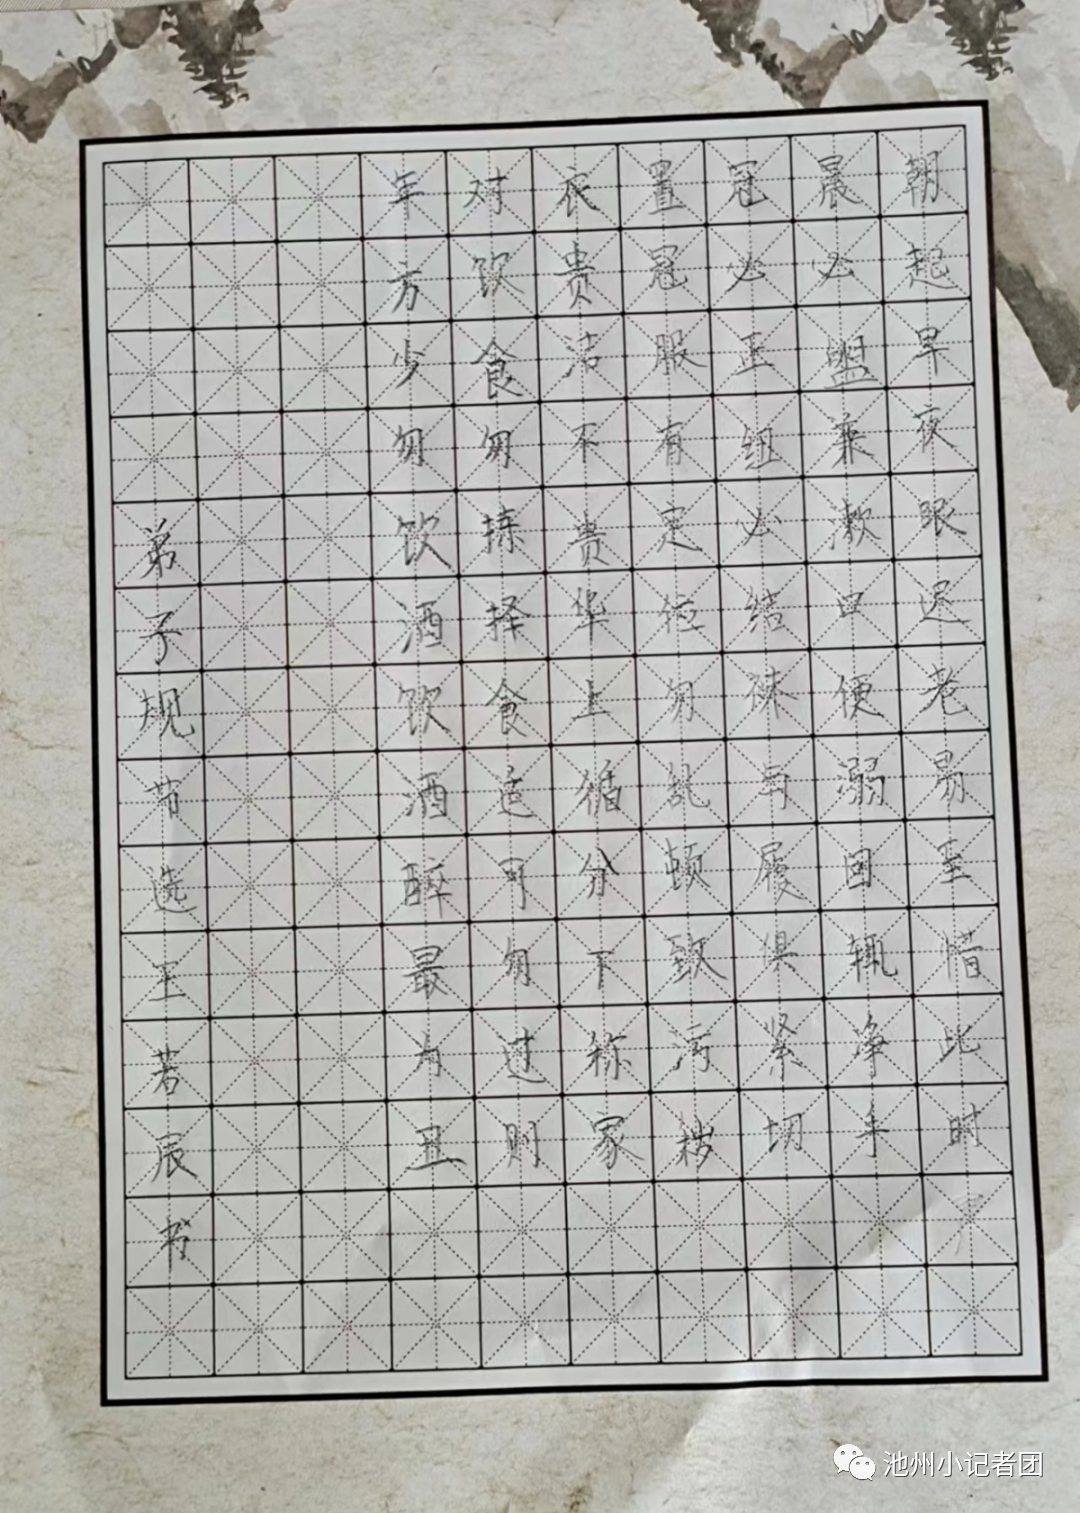 朝起早夜眠迟老易至惜此时
晨必盥兼漱口便溺回辄净手
冠必正纽必结袜与履俱紧切
置冠服有定位勿乱顿致污秽
衣贵洁不贵华上循分下称家
对饮食勿拣择食适可勿过则
年方少勿饮酒饮酒醉最为丑
弟子规节选王若辰书
池州小记者团